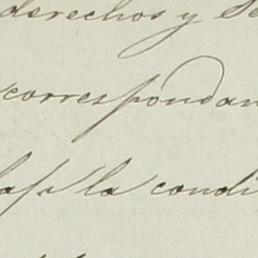 derechos y se
correspondan
bajo la condi